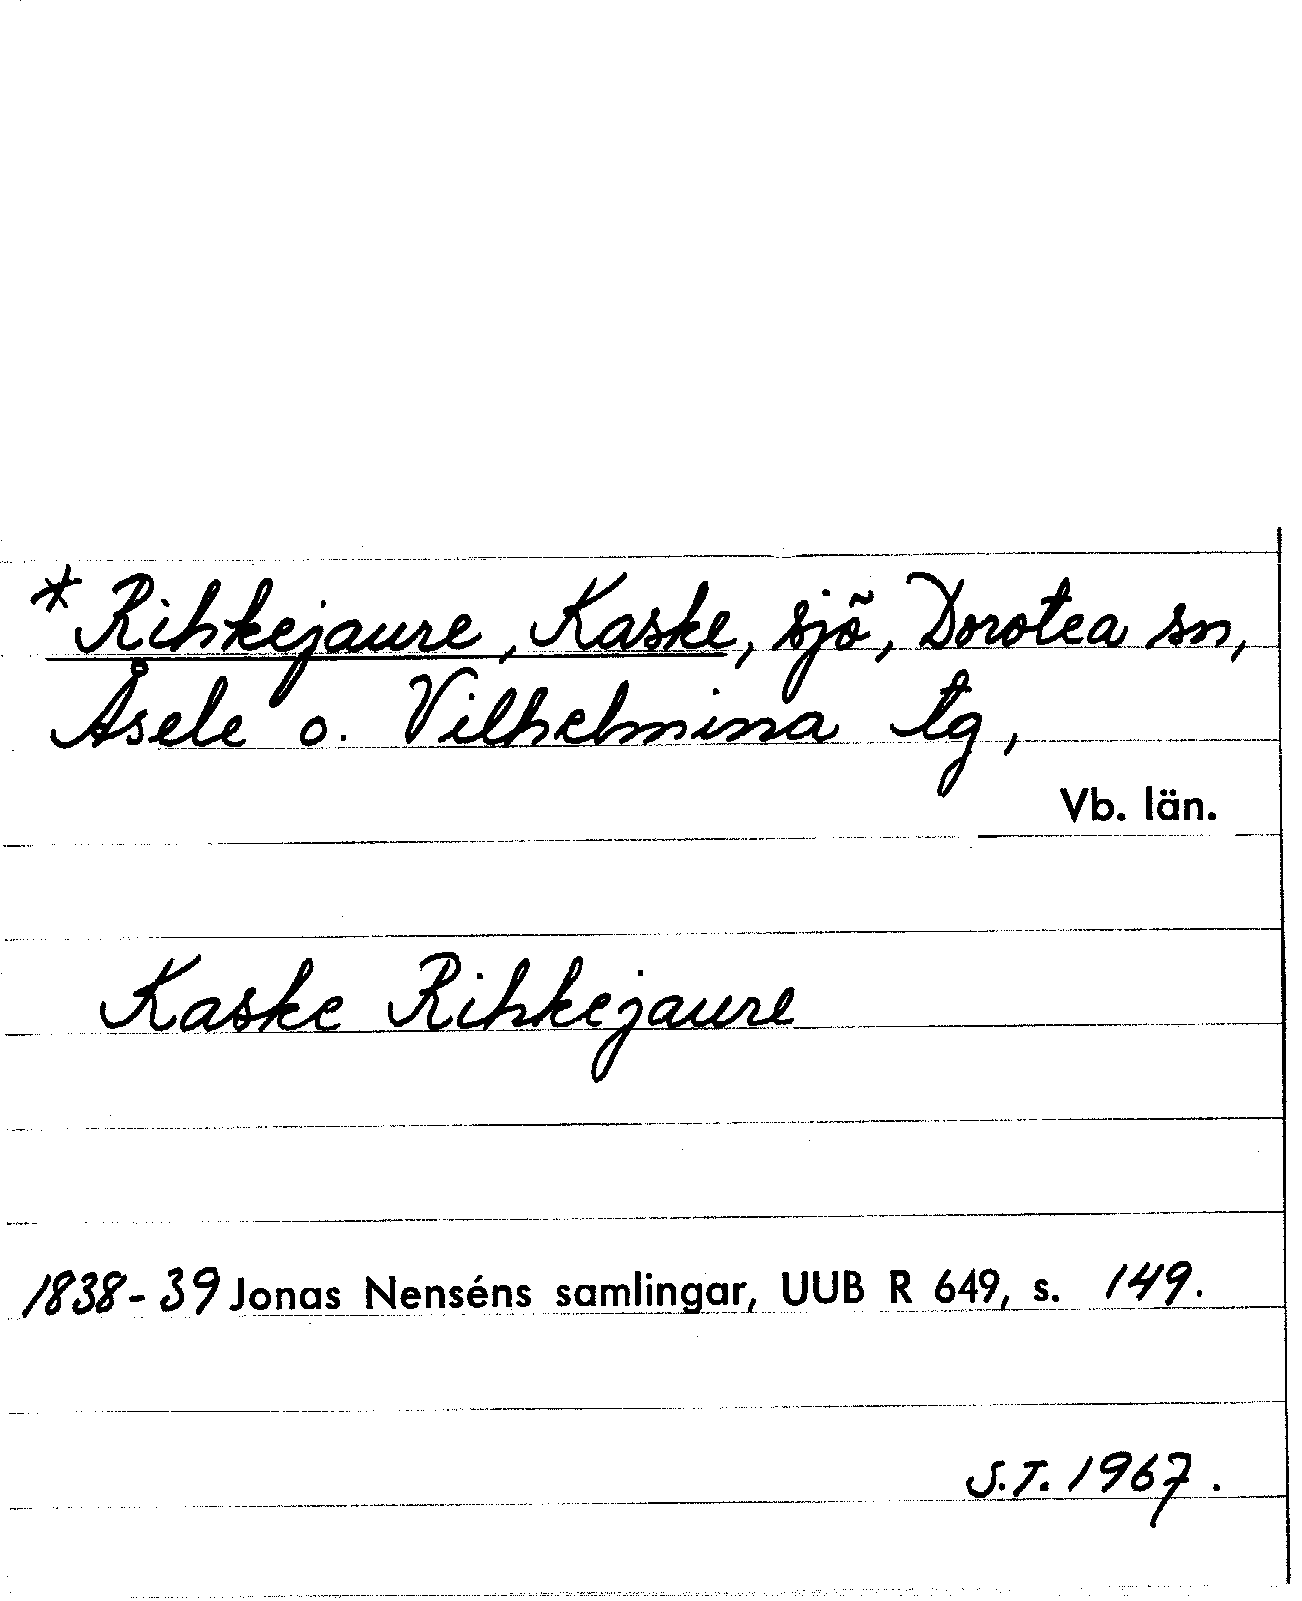 * Rihkejaure, Kaske, sjö, Dorotea sn,
Åsele o. Vilhelmina tg,
Vb. län.
Kaske Rihkejaure
1838-39 Jonas Nenséns samlingar, UUB R 649, s. 149.
S.T. 1967.